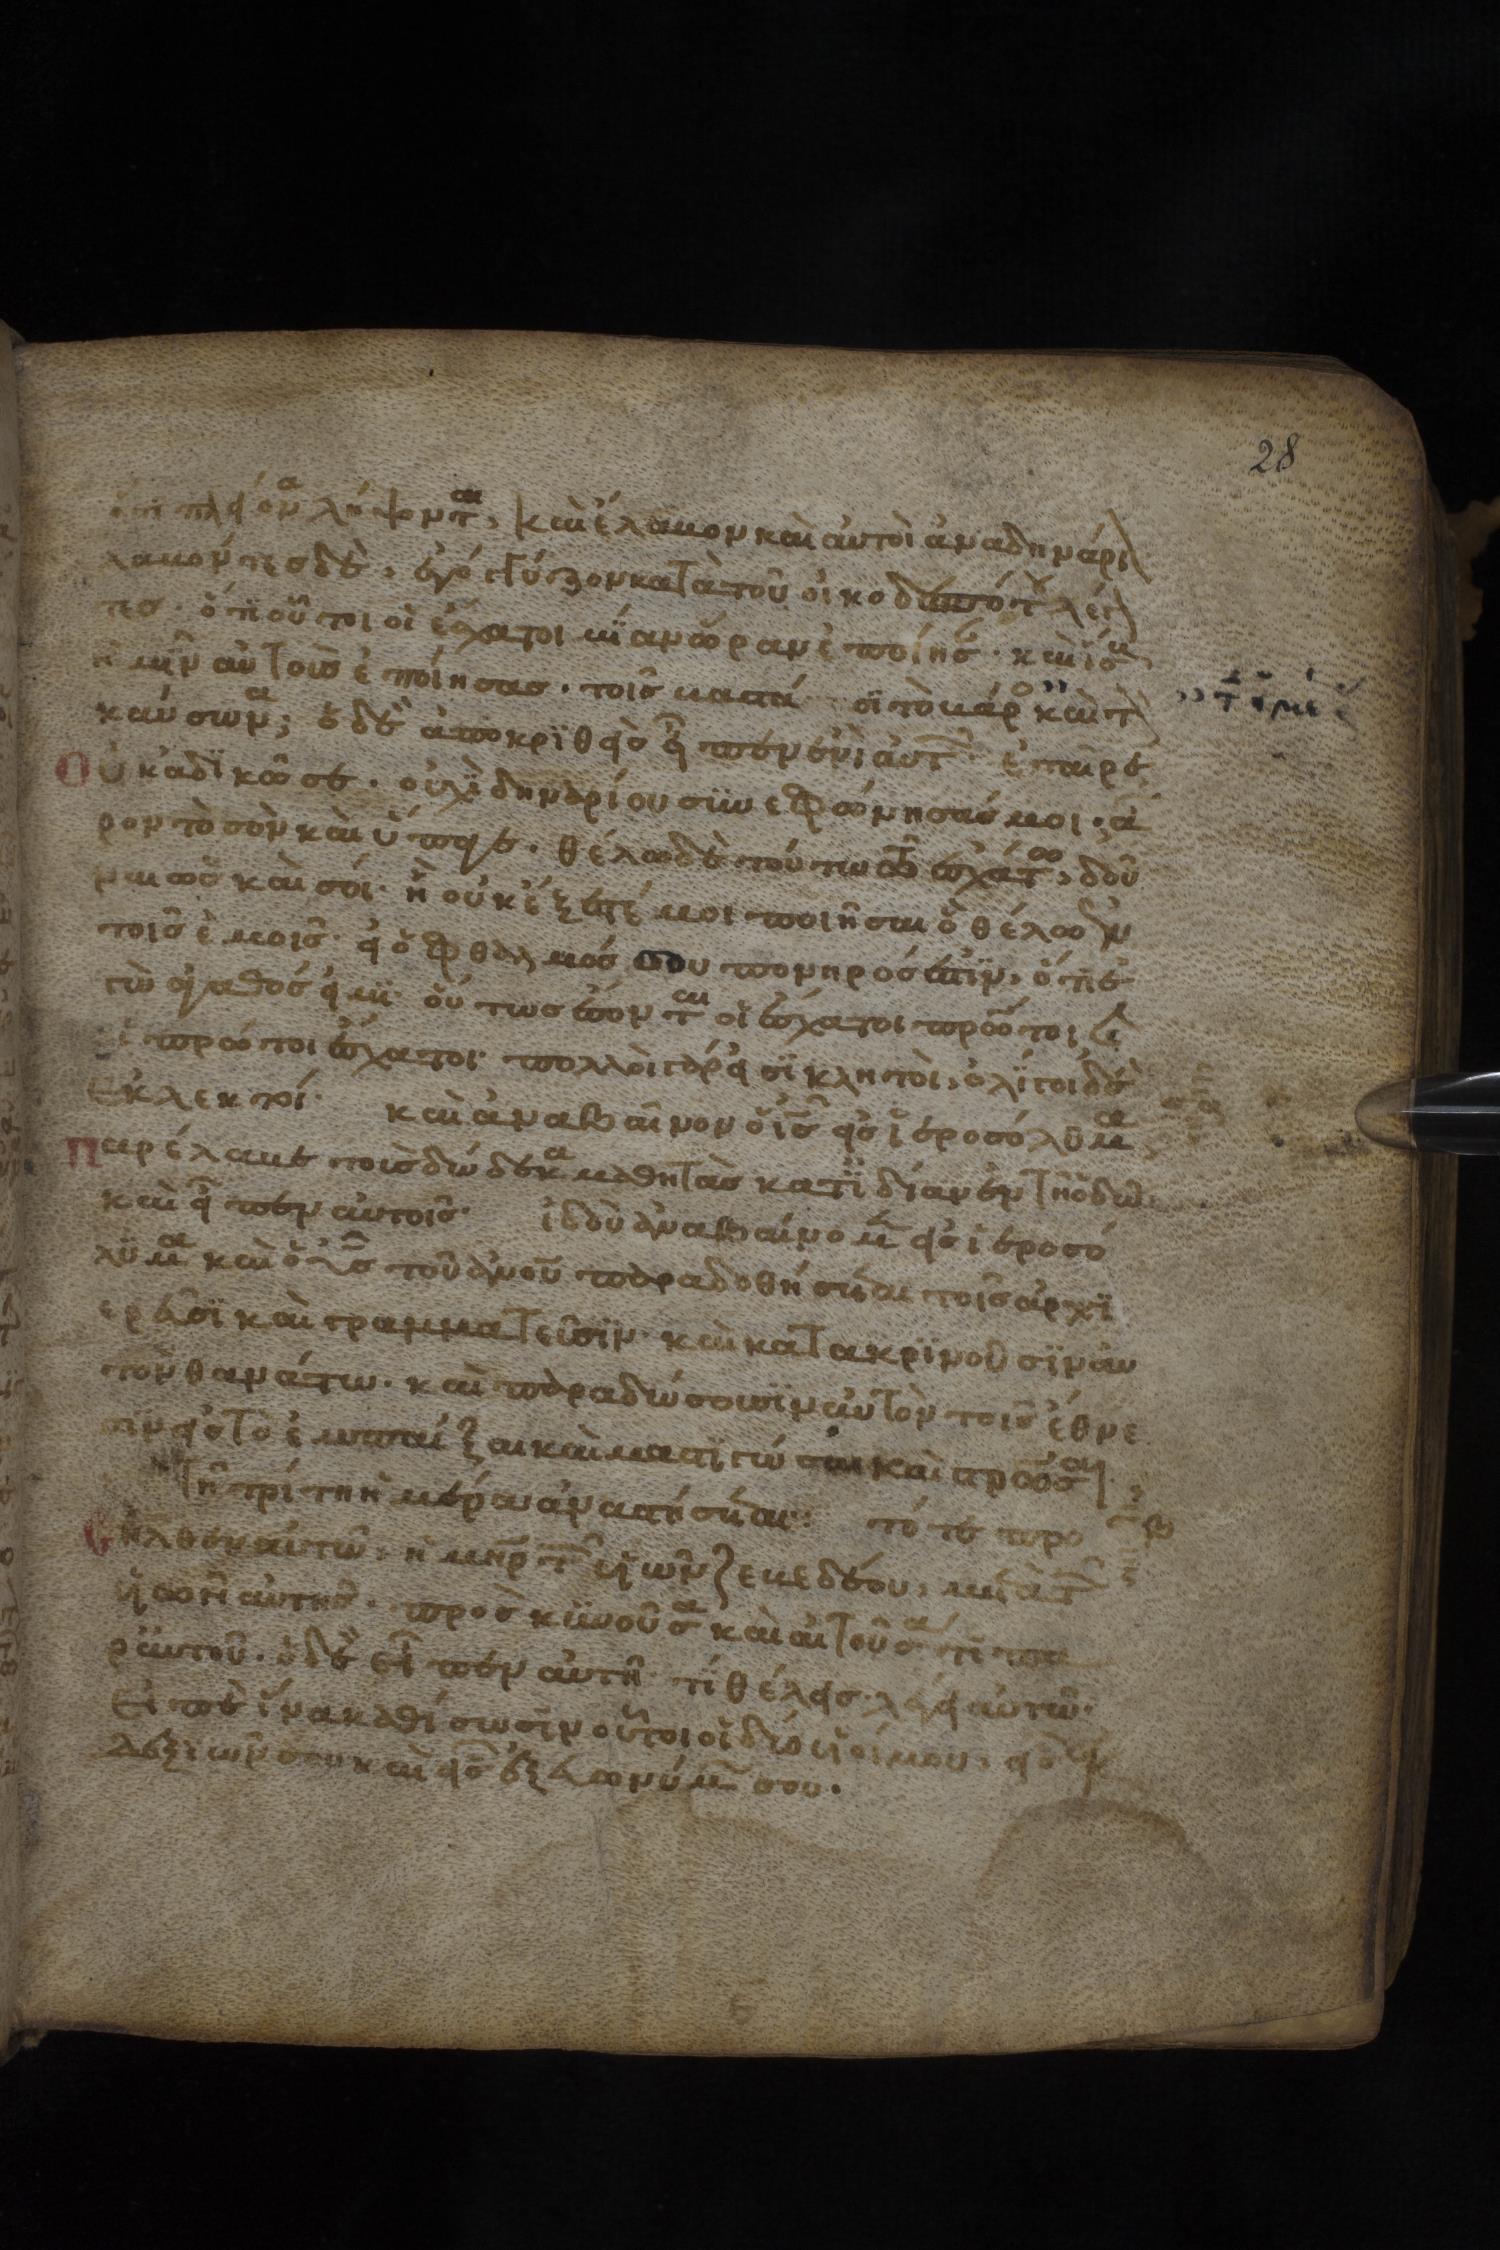 28
ὅτι πλείονα λήψονται, καὶ ἔλαβον καὶ αὐτοὶ ἀνα δηνάρι
λαβόντες δὲ, ἐγόγγυζον κατὰ τοῦ οἰκοδεσπότου λέγ
τες· ὅτι οὗτοι οἱ ἔσχατοι μίαν ὥραν ἐποίησαν· καὶ ἴσους
ἡμῖν αὐτοὺς ἐποίησας· τοῖς βαστάσασι τὸ βάρος καὶ τὸν
καύσωνα; ὁ δὲ ἀποκριθεὶς εἶπεν ἑνὶ αὐτῶν· ἑταῖρε
Οὐκ ἀδικῶ σε· οὐχὶ δηναρίου συνεφώνησάς μοι· ἆ
ρον τὸ σὸν καὶ ὕπαγε· θέλω δὲ τούτω τῶ ἐσχάτω, δοῦ
ναι ὡς καὶ σοί· ἢ οὐκ ἔξεστί μοι ποιῆσαι ὃ θέλω ἐν
τοῖς ἐμοῖς· εἰ ὁ ὀφθαλμός σου πονηρός ἐστιν, ὅτι ἐ
γὼ ἀγαθός εἰμι· οὕτως ἔσονται οἱ ἔσχατοι πρῶτοι καὶ
οἱ πρῶτοι ἔσχατοι· πολλοὶ γάρ εἰσι κλητοὶ, ὀλίγοι δὲ
Ἐκλεκτοί· καὶ ἀναβαίνων ὁ ις εἰς ἱεροσόλυμα
Παρέλαβε τοὺς δώδεκα μαθητὰς κατιδίαν ἐν τῆ ὁδῶ
καὶ εἶπεν αὐτοῖς· ἰδοὺ ἀναβαίνομεν εἰς ἱεροσό
λυμα καὶ ὁ υς τοῦ ανου παραδοθήσεται τοῖς ἀρχι
ερεῦσι καὶ γραμματεῦσιν· καὶ κατακρινοῦσιν αὐ
τὸν θανάτω· καὶ παραδώσουσιν αὐτὸν τοῖς ἔθνε
σιν εἰς τὸ ἐμπαῖξαι καὶ μαστιγῶσαι καὶ σταυρῶσαι
τῆ τρίτη ἡμέρα ἀναστήσεται: τότε προ
σῆλθεν αὐτῶ, ἡ μηρ τῶν υἱῶν ζεβεδέου, μετὰ τῶν
υἱῶν αὐτῆς· προσκυνοῦσα καὶ αἰτοῦσά τι πα
ρ' αὐτοῦ· ὁ δὲ εἶπεν αὐτῆ· τί θέλεις· λέγει αὐτῶ·
Εἰπὲ ἵνα καθίσωσιν οὗτοι οἱ δύο υἱοί μου, εἷς ἐκ
Δεξιῶν σου καὶ εἷς ἐξ εὐωνύμων σου·